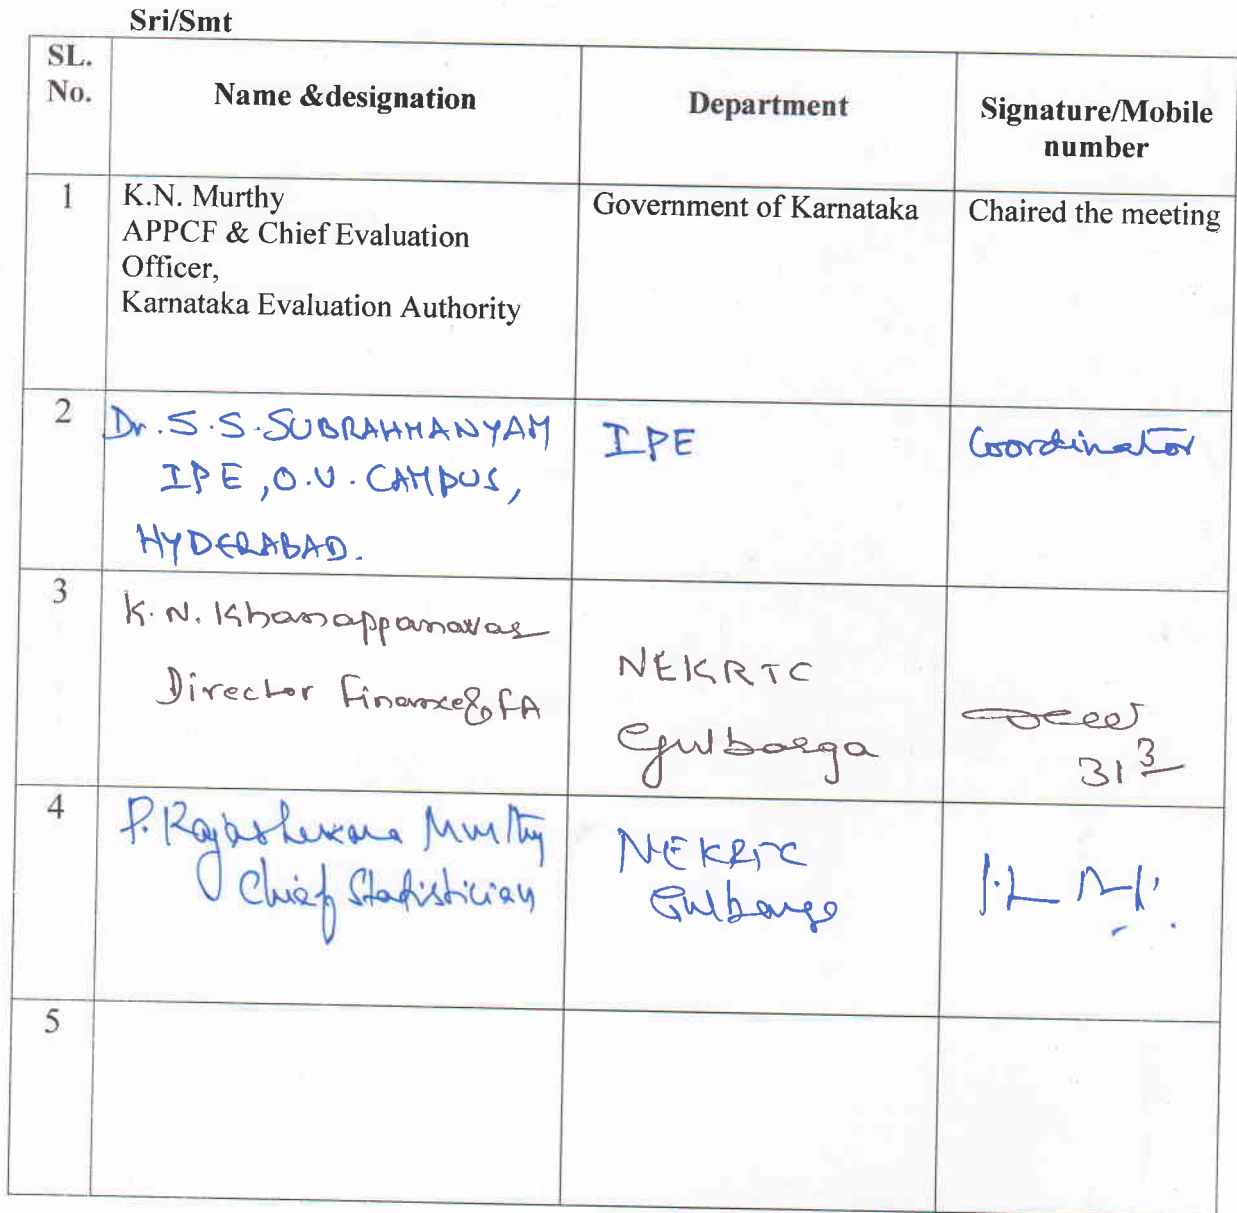 Sri/Smt
SL.
No.
Name &designation
Department
Signature/Mobile
number
1
K.N. Murthy
APPCF & Chief Evaluation
Officer,
Karnataka Evaluation Authority
Government of Karnataka
Chaired the meeting
2
Dr. S.S. SUBRAHMANYAM
IPE, O.U. CAMPUS,
HYDERABAD.
IPE
Coordinator
3
K. N. Khanappanavar
Director Finance & FA
NEKRTC
Gulbarga
31 3
4
P. Rajashekara Murthy
Chief Statistician
NEKRTC
Gulbarga
5